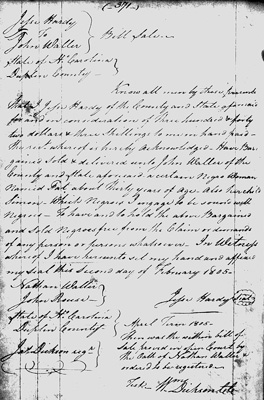 (371)
Jesse Hardy
To
John Waller
State of No. Carolina
Duplin County
Bill Sale
Know all men by these presents
That I Jesse Hardy of the County and State aforesaid
for and in consideration of three hundred & forty
two dollars & three Shillings to me in hand paid
the rect. whereof is hereby acknowledged. Have Bar-
gained Sold & delivered unto John Waller of the
County and State aforesaid a certain Negro Woman
Named Pat, about thirty years of age. Also her child
Simon. Which Negroes I engage to be sound well
Negroes - To have and to hold the above Bargained
and Sold Negroes free from the Claim or demands
of any person or persons whatsoever. In Witness
whereof I have hereunto set my hand and affixed
my Seal this Second day of February 1805.
Nathan Waller
John Rouse
Jesse Hardy (Seal)
State of No. Carolina
Duplin County
April Term 1805.
Then was the within bill of
Sale proved in open Court by
the Oath of Nathan Waller &
ordered to be registered
Test. Wm. Dickson
Jas. Dickson